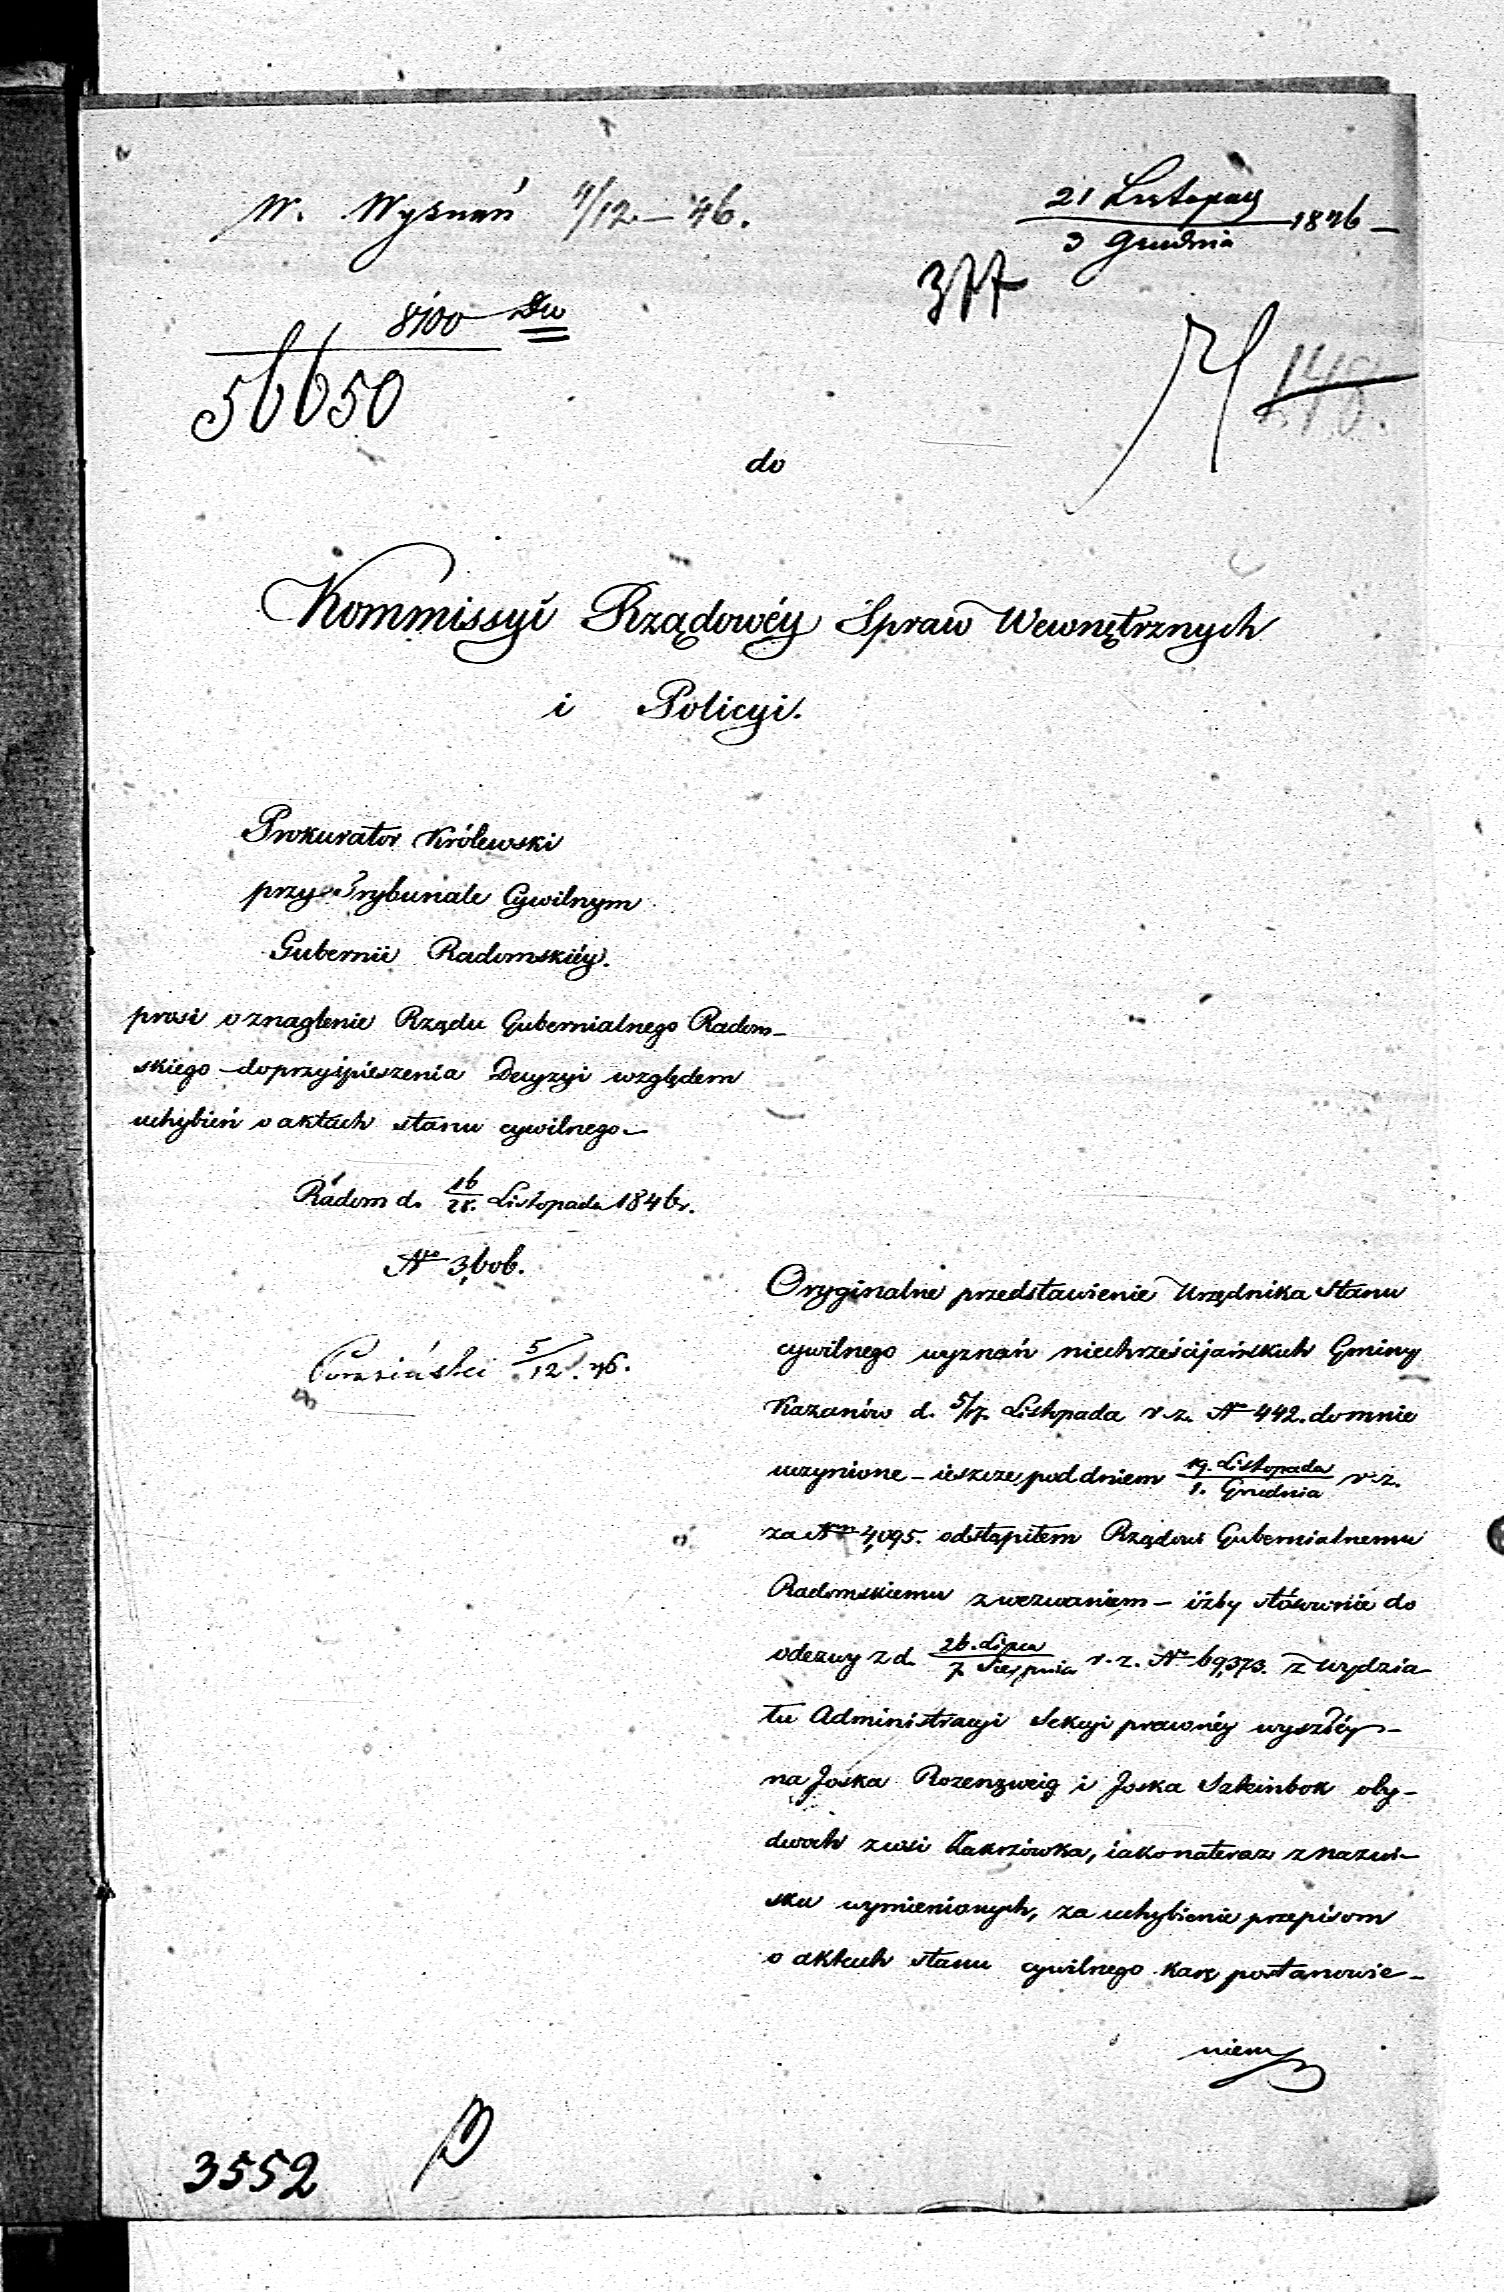 W. Wyznań 4/12 – 46.
21 Listopad
3 Grudnia 1846 –
377
8100
56650
148.
do
Kommissyi Rządowéy Spraw Wewnętrznych
i Policyi.
Prokurator Królewski
przy Trybunale Cywilnym
Gubernii Radomskiéy.
prosi o znaglenie Rządu Gubernialnego Radom-
skiego do przyśpieszenia Decyzyi względem
uchybień o aktach stanu cywilnego –
Radom d. 16/28. Listopada 1846 r.
No 3,606.
5/12. 46.
Oryginalne przedstawienie Urzędnika Stanu
cywilnego wyznań niechrześcijańskich Gminy
Kazanów d. 5/17. Listopada r. z. No 442. do mnie
uczynione – ieszcze pod dniem 19. Listopada / 1. Grudnia r. z.
za Nrm 4,095. odstąpiłem Rządowi Gubernialnemu
Radomskiemu z wezwaniem – iżby stósownie do
odezwy z d. 26. Lipca / 7. Sierpnia r. z. No 69,373. z wydzia-
łu Administracyi Sekcyi prawnéy wyszłéy –
na Joska Rozenzweig i Joska Szteinbok oby-
dwóch z wsi Zakrzówka, iako na teraz z nazwi-
sku wymienionych, za uchybienie przepisom
o aktach stanu cywilnego karę postanowie-
niem
3552